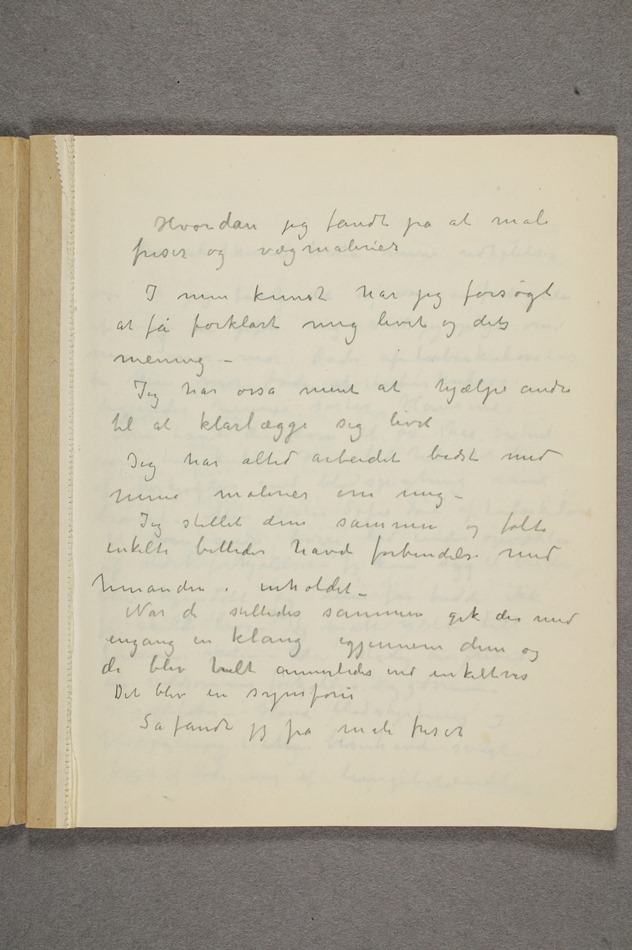 Hvordan jeg fandt pa at male
friser og vægmalerier
I min kunst har jeg forsøgt
at få forklart mig livet og dets
mening –
Jeg har ossa ment at hjælpe andre
til at klarlægge sig livet
Jeg har altid arbeidet bedst med
mine malerier om mig –
Jeg stillet dem sammen og følte
enkelte billeder havde forbindelse med
hinanden i inholdet –
Når de stilledes sammen gik der med
engang en klang igjennem dem og
de blev helt annerledes end enkeltvis
Det blev en symfoni
Sa fandt jeg pa male friser